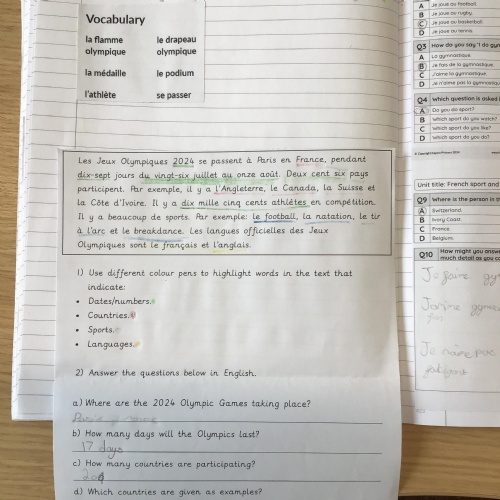 Vocabulary
la flamme le drapeau
olympique olympique
la médaille le podium
l'athlète se passer
Les Jeux Olympiques 2024 se passent à Paris en France, pendant
dix-sept jours du vingt-six juillet au onze août. Deux cent six pays
participent. Par exemple, il y a l'Angleterre, le Canada, la Suisse et
la Côte d'Ivoire. Il y a dix mille cinq cents athlètes en compétition.
Il y a beaucoup de sports. Par exemple: le football, la natation, le tir
à l'arc et le breakdance. Les langues officielles des Jeux
Olympiques sont le français et l'anglais.
1) Use different colour pens to highlight words in the text that
indicate:
• Dates/numbers.
• Countries.
• Sports.
• Languages.
2) Answer the questions below in English.
a) Where are the 2024 Olympic Games taking place?
b) How many days will the Olympics last?
17 days
c) How many countries are participating?
d) Which countries are given as examples?
A Je joue au football.
B Je joue au rugby.
C Je joue au basketball.
D Je joue au tennis.
Q3 How do you say 'I do
A La gymnastique.
B Je fais de la gymnastique.
C J'aime la gymnastique.
D Je n'aime pas la
Q4 Which question is asked
A Do you do sport?
B Which sport do you watch?
C Which sport do you like?
D Which sport do you do?
Unit title: French sport and
Q9 Where is the person in the
A Switzerland.
B Ivory Coast.
C France.
D Belgium.
Q10 How might you answer
much detail as you